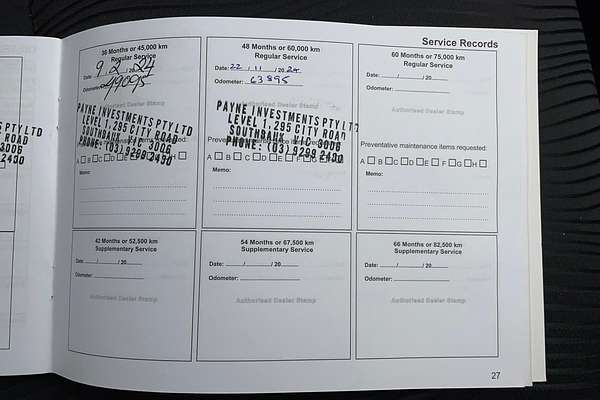 Service Records
36 Months or 45,000 km
Regular Service
Date: 9 / 2 / 20 24
Odometer: 49095
Authorised Dealer Stamp
PAYNE INVESTMENTS PTY LTD
LEVEL 1, 295 CITY ROAD
SOUTHBANK, VIC 3006
PHONE: (03) 9299 2400
A B C D E F G H
Memo:
48 Months or 60,000 km
Regular Service
Date: 22 / 11 / 20 24
Odometer: 63895
Authorised Dealer Stamp
PAYNE INVESTMENTS PTY LT
LEVEL 1, 295 CITY ROAD
SOUTHBANK, VIC 3006
PHONE: (03) 9299 2400
A B C D E F G H
Memo:
60 Months or 75,000 km
Regular Service
Date: / / 20
Odometer:
Authorised Dealer Stamp
Preventative maintenance items requested:
A B C D E F G H
Memo:
42 Months or 52,500 km
Supplementary Service
Date: / / 20
Odometer:
Authorised Dealer Stamp
54 Months or 67,500 km
Supplementary Service
Date: / / 20
Odometer:
Authorised Dealer Stamp
66 Months or 82,500 km
Supplementary Service
Date: / / 20
Odometer:
Authorised Dealer Stamp
27